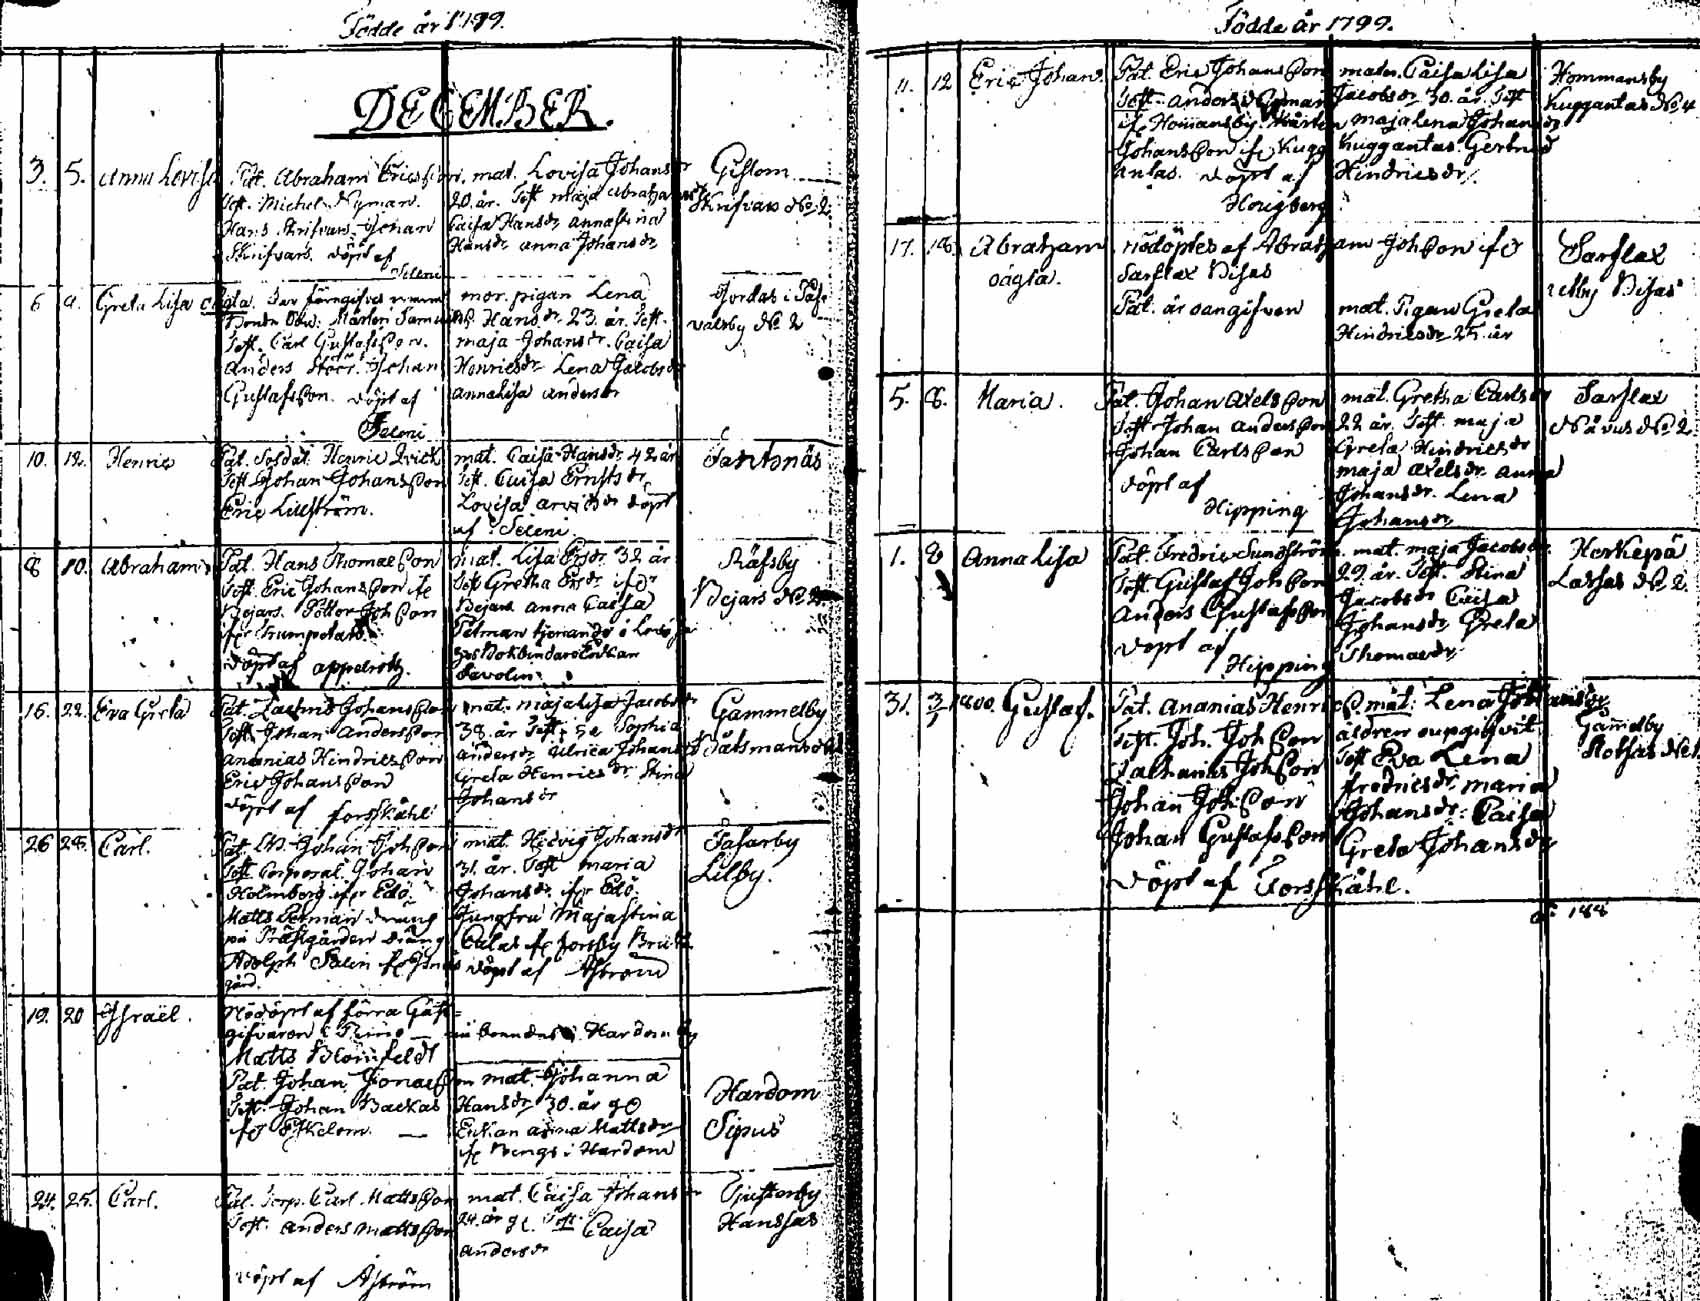 Födde år 1799.
DECEMBER.
3. 5. Anna Lovisa
Pat. Abraham Ericsson, mat. Lovisa Johansdr
Test. Michel Nyman. 20 år. Test maja Abrahamsdr
Hans Skrifvars. Johan Caisa Hansdr Annastina
Skrifvars. döpt af Hansdr anna Johansdr
Seleni
Gislom
Skrifvars No 2
6 9. Greta Lisa oägta. mor. pigan Lena
Hansdr. 23. år. Test.
Test. Carl Gustafsson. maja Johansdr. Caisa
Anders Johan Henricsdr Lena Jacobsdr
Gustafsson. döpt af Annalisa Andersdr
Seleni
Jordas i
No 2
10. 12. Henric
Pat. Soldat. Henric Qvick mat. Caisa Hansdr 42 år
Test. Johan Johansson Test. Caisa Ernstsdr
Eric Lillström. Lovisa döpt
af Seleni
Saritsnäs
8 10. Abraham
Pat. Hans Thomasson mat. Lisa Ersdr 32 år
Test. Eric Johansson ifr Test Gretha Ersdr ifr
Bejars. Petter Johsson Bejars Anna Caisa
ifr Trumpetars. Petman tjenande i Lovisa
döpt af appelroth. hos Bokbindare Enkan
Savolin
Räfsby
Bejars No 2
16. 22. Eva Greta
Pat. Zachris Johansson mat. majalisa Jacobsdr
Test. Johan Andersson 38. år Test: Sophia
Ananias Hindricsson Andersdr Ulrica Johansdr
Eric Johansson Greta Henricsdr Stina
döpt af Forsskåhl Johansdr
Gammelby
Båtsmans
26 28. Carl.
Pat. Johan Johsson mat. Hedvig Johansdr
Test. Corporal. Johan 31. år. Test maria
Holmberg ifr Edö Johansdr ifr Edö.
Matts Petman dräng Jungfru Majastina
på Prästgården dräng Calas fr Forsby Bruk
Adolph Salin döpt af Åström
gård.
Tasarby
Lilby.
19. 20 Israël.
Nödöpt af förra Gäst=
gifvaren
Matts Blomfeldt
Pat. Johan Jonasson mat. Johanna
Test. Johan Backas Hansdr 30. år
Enkan Anna Mattsdr
Bengs i Hardom
Hardom
Sipus
24. 25. Carl.
Pat. Torp. Carl Mattsson mat. Caisa Johansdr
Test: Anders Mattsson 24. år Test Caisa
Andersdr
döpt af Åström
Gjusterby
Hanssas
Födde år 1799.
11. 12 Eric Johan.
Pat. Eric Johansson mater. Caisa Lisa
Test. Anders Jacobsdr 30. år. Test
ifr Homansby. Mårten majaLena Johansdr
Johansson ifr Kugg Kuggantas. Gertrud
antas. döpt af Hindricsdr
Horigberg
Hommansby
Kuggantas No 4
17. 18. Abraham
oägta.
nöddöptes af Abraham Johsson ifr
Sarflax Nisas
Pat. är oangifven mat. Pigan Greta
Hindricsdr 25. år
Sarflax
Nisas
5. 8. Maria.
Pat. Johan Axelsson mat. Gretha Carlsdr
Test. Johan Andersson 22 år. Test. maja
Johan Carlsson Greta Hindricsdr
döpt af maja Axelsdr. Anna
Hipping Johansdr. Lena
Johansdr
Sarflax
No 2
1. 8 Anna Lisa
Pat. Fredric Sundström. mat. maja Jacobsdr
Test Gustaf Johsson 29. år. Test. Stina
Anders Gustafsson Jacobsdr Caisa
döpt af Johansdr Greta
Hipping Thomasdr
Horkepä
Lassas No 2
31. 3/1 1800. Gustaf.
Pat. Ananias Henricsson mat: Lena Johansdr
Test. Joh. Johsson åldren oupgifvit
Zacharias Johsson Test Eva Lena
Johan Johsson fredricsdr, maria
Johan Gustafsson Johansdr: Caisa
Greta Johansdr
döpt af Forsskåhl.
Gammelby
Robsas No 1
188